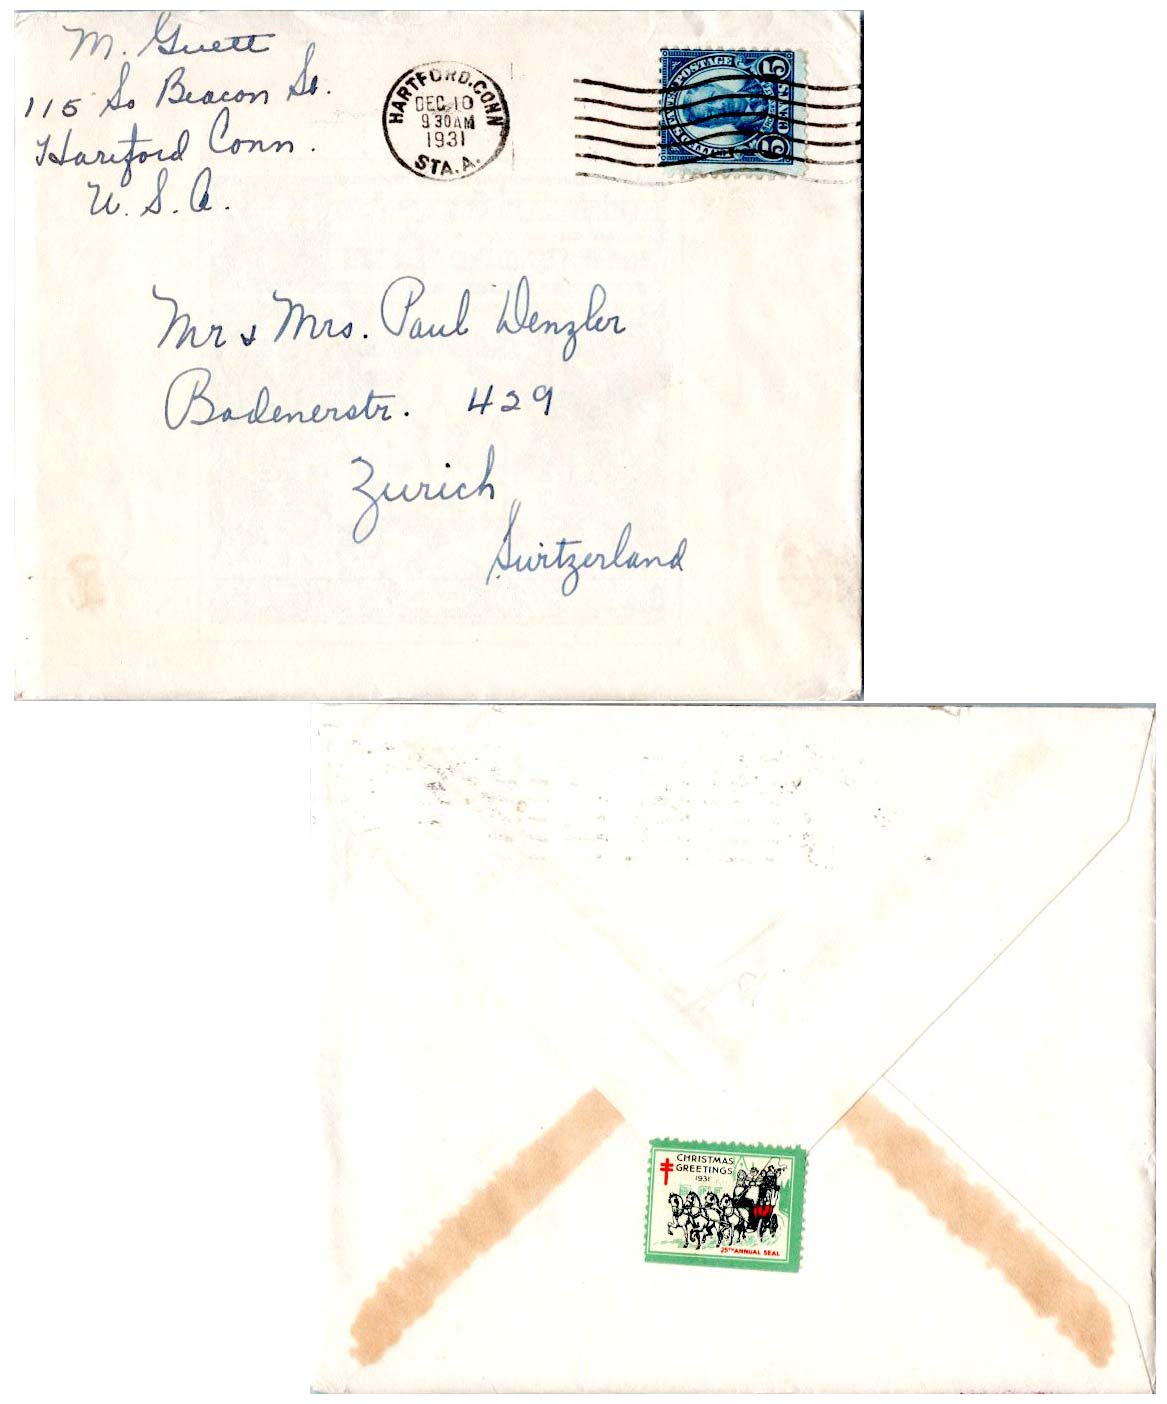 M. Guett
115 So Beacon St.
Hartford Conn.
U. S. A.
HARTFORD, CONN
DEC 10
9 30 AM
1931
STA. A.
POSTAGE
5 CENTS 5
Mr & Mrs. Paul Wenzler
Badenerstr. 429
Zurich
Switzerland
CHRISTMAS
GREETINGS
1931
25TH ANNUAL SEAL